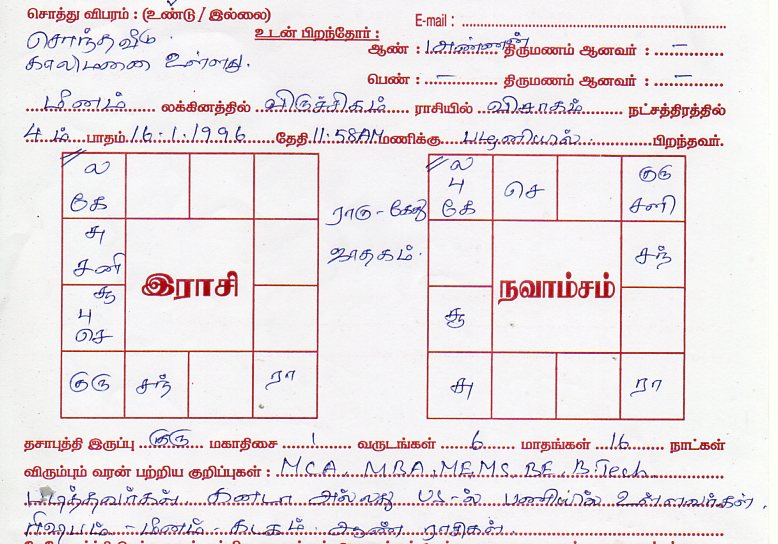 சொத்து விபரம் : (உண்டு / இல்லை)
E-mail :
சொந்தவீடு
உடன் பிறந்தோர் :
ஆண் : 1 அண்ணன் திருமணம் ஆனவர் : –
காலிமனை உள்ளது.
பெண் : – திருமணம் ஆனவர் : –
மீனம் லக்கினத்தில் விருச்சிகம் ராசியில் விசாகம் நட்சத்திரத்தில்
4 ம் பாதம் 16.1.1996 தேதி 11:58AM மணிக்கு பழனியில் பிறந்தவர்.
ல
கே
சு
சனி
சூ
பு
செ
குரு
சந்
ரா
இராசி
ராகு - கேது
ஜாதகம்.
ல
பு
கே
செ
குரு
சனி
சந்
சூ
சு
ரா
நவாம்சம்
தசாபுத்தி இருப்பு குரு மகாதிசை 1 வருடங்கள் 6 மாதங்கள் 16 நாட்கள்
விரும்பும் வரன் பற்றிய குறிப்புகள் : MCA, MBA, ME, MS, BE, B.Tech
படித்தவர்கள் கனடா அல்லது US-ல் பணியில் உள்ளவர்கள்.
ரிஷபம் - மீனம் - கடகம். ஆண் ராசிகள்.